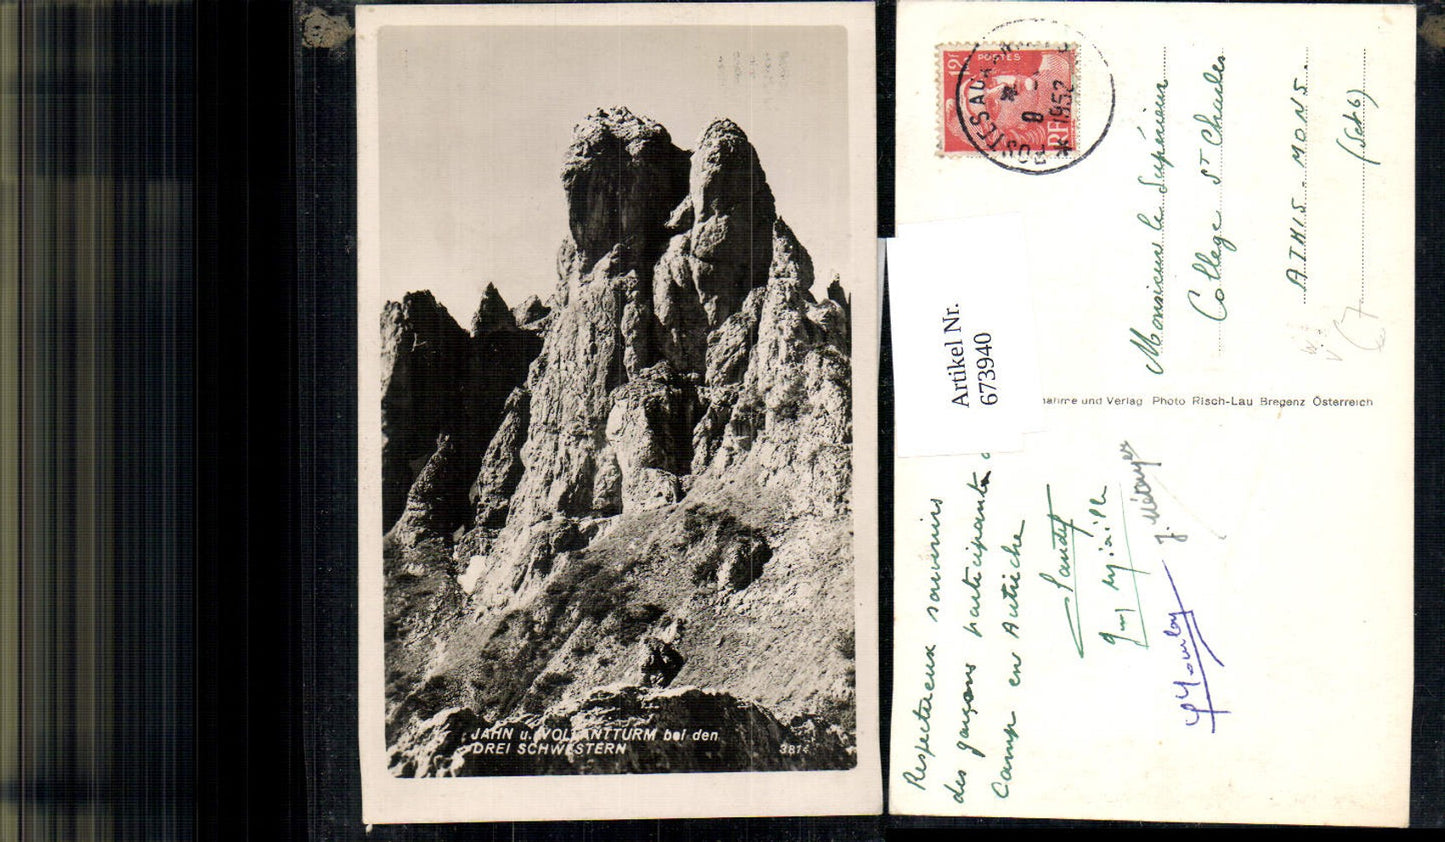 JAHN u. VOLLANTTURM bei den
DREI SCHWESTERN
3814
12F
POSTES
RF
POSTES AUX
8
1952
Monsieur le Supérieur
College St Charles
ATHIS-MONS.
(Set 6)
Artikel Nr.
673940
nahme und Verlag Photo Risch-Lau Bregenz Österreich
Respectueux souvenirs
des garçons participants
Camp en Autriche